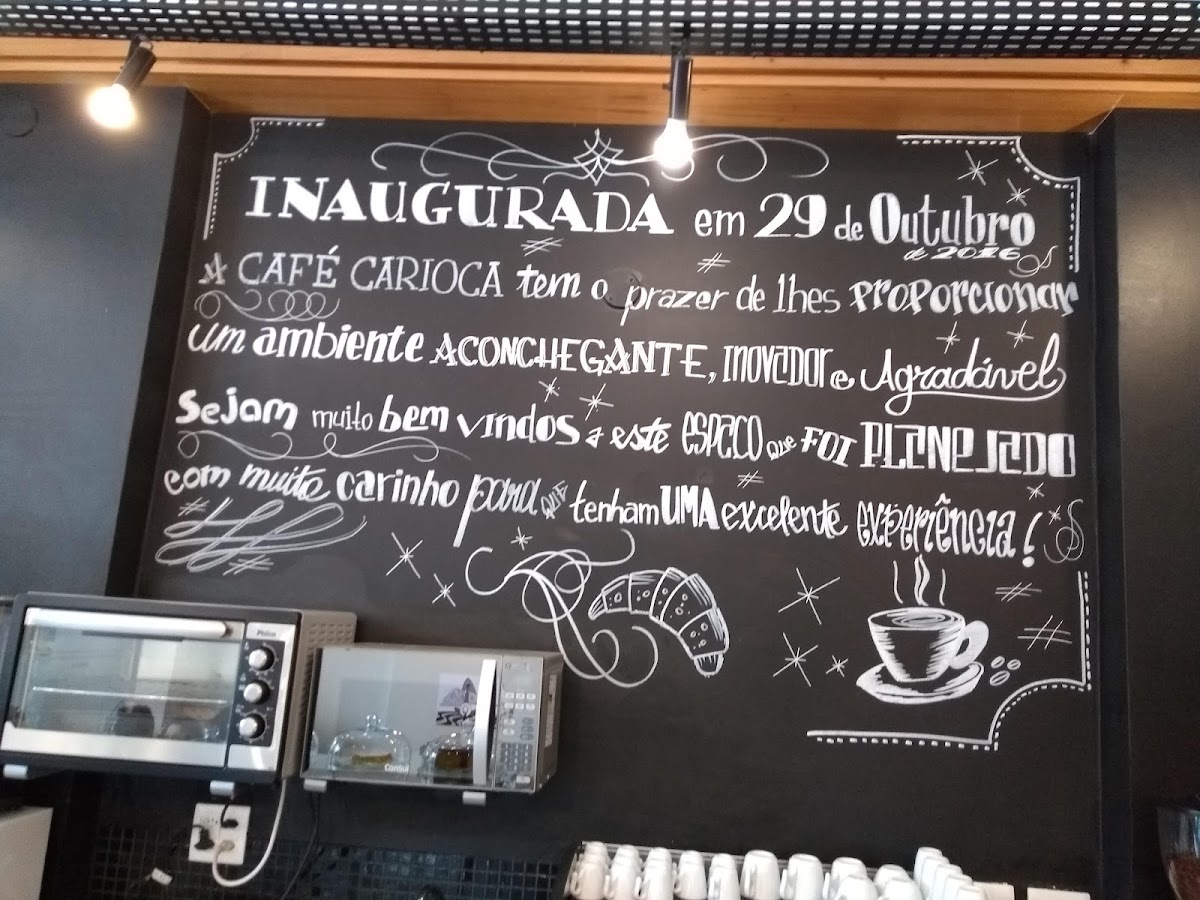 INAUGURADA em 29 de Outubro
de 2016
A CAFÉ CARIOCA tem o prazer de lhes proporcionar
um ambiente ACONCHEGANTE, INOVADOR e Agradável
Sejam muito bem vindos a este espaço que foi PLANEJADO
com muito carinho para que tenham UMA excelente experiência!
Philco
Consul